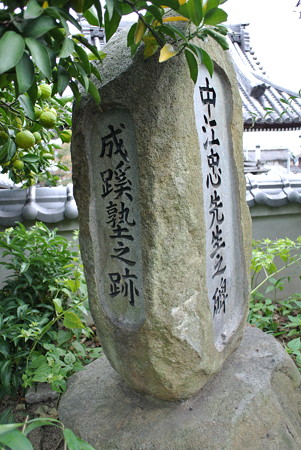 中江忠先生之碑
成蹊塾之跡